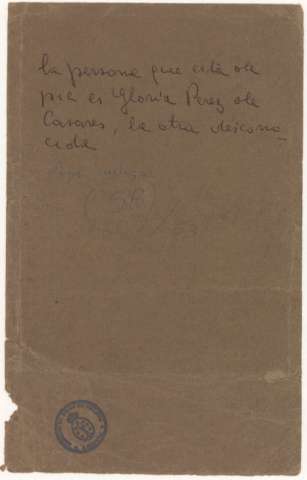 la persona que está de
pie es Gloria Perez de
Casares, la otra descono-
cida
(SR)